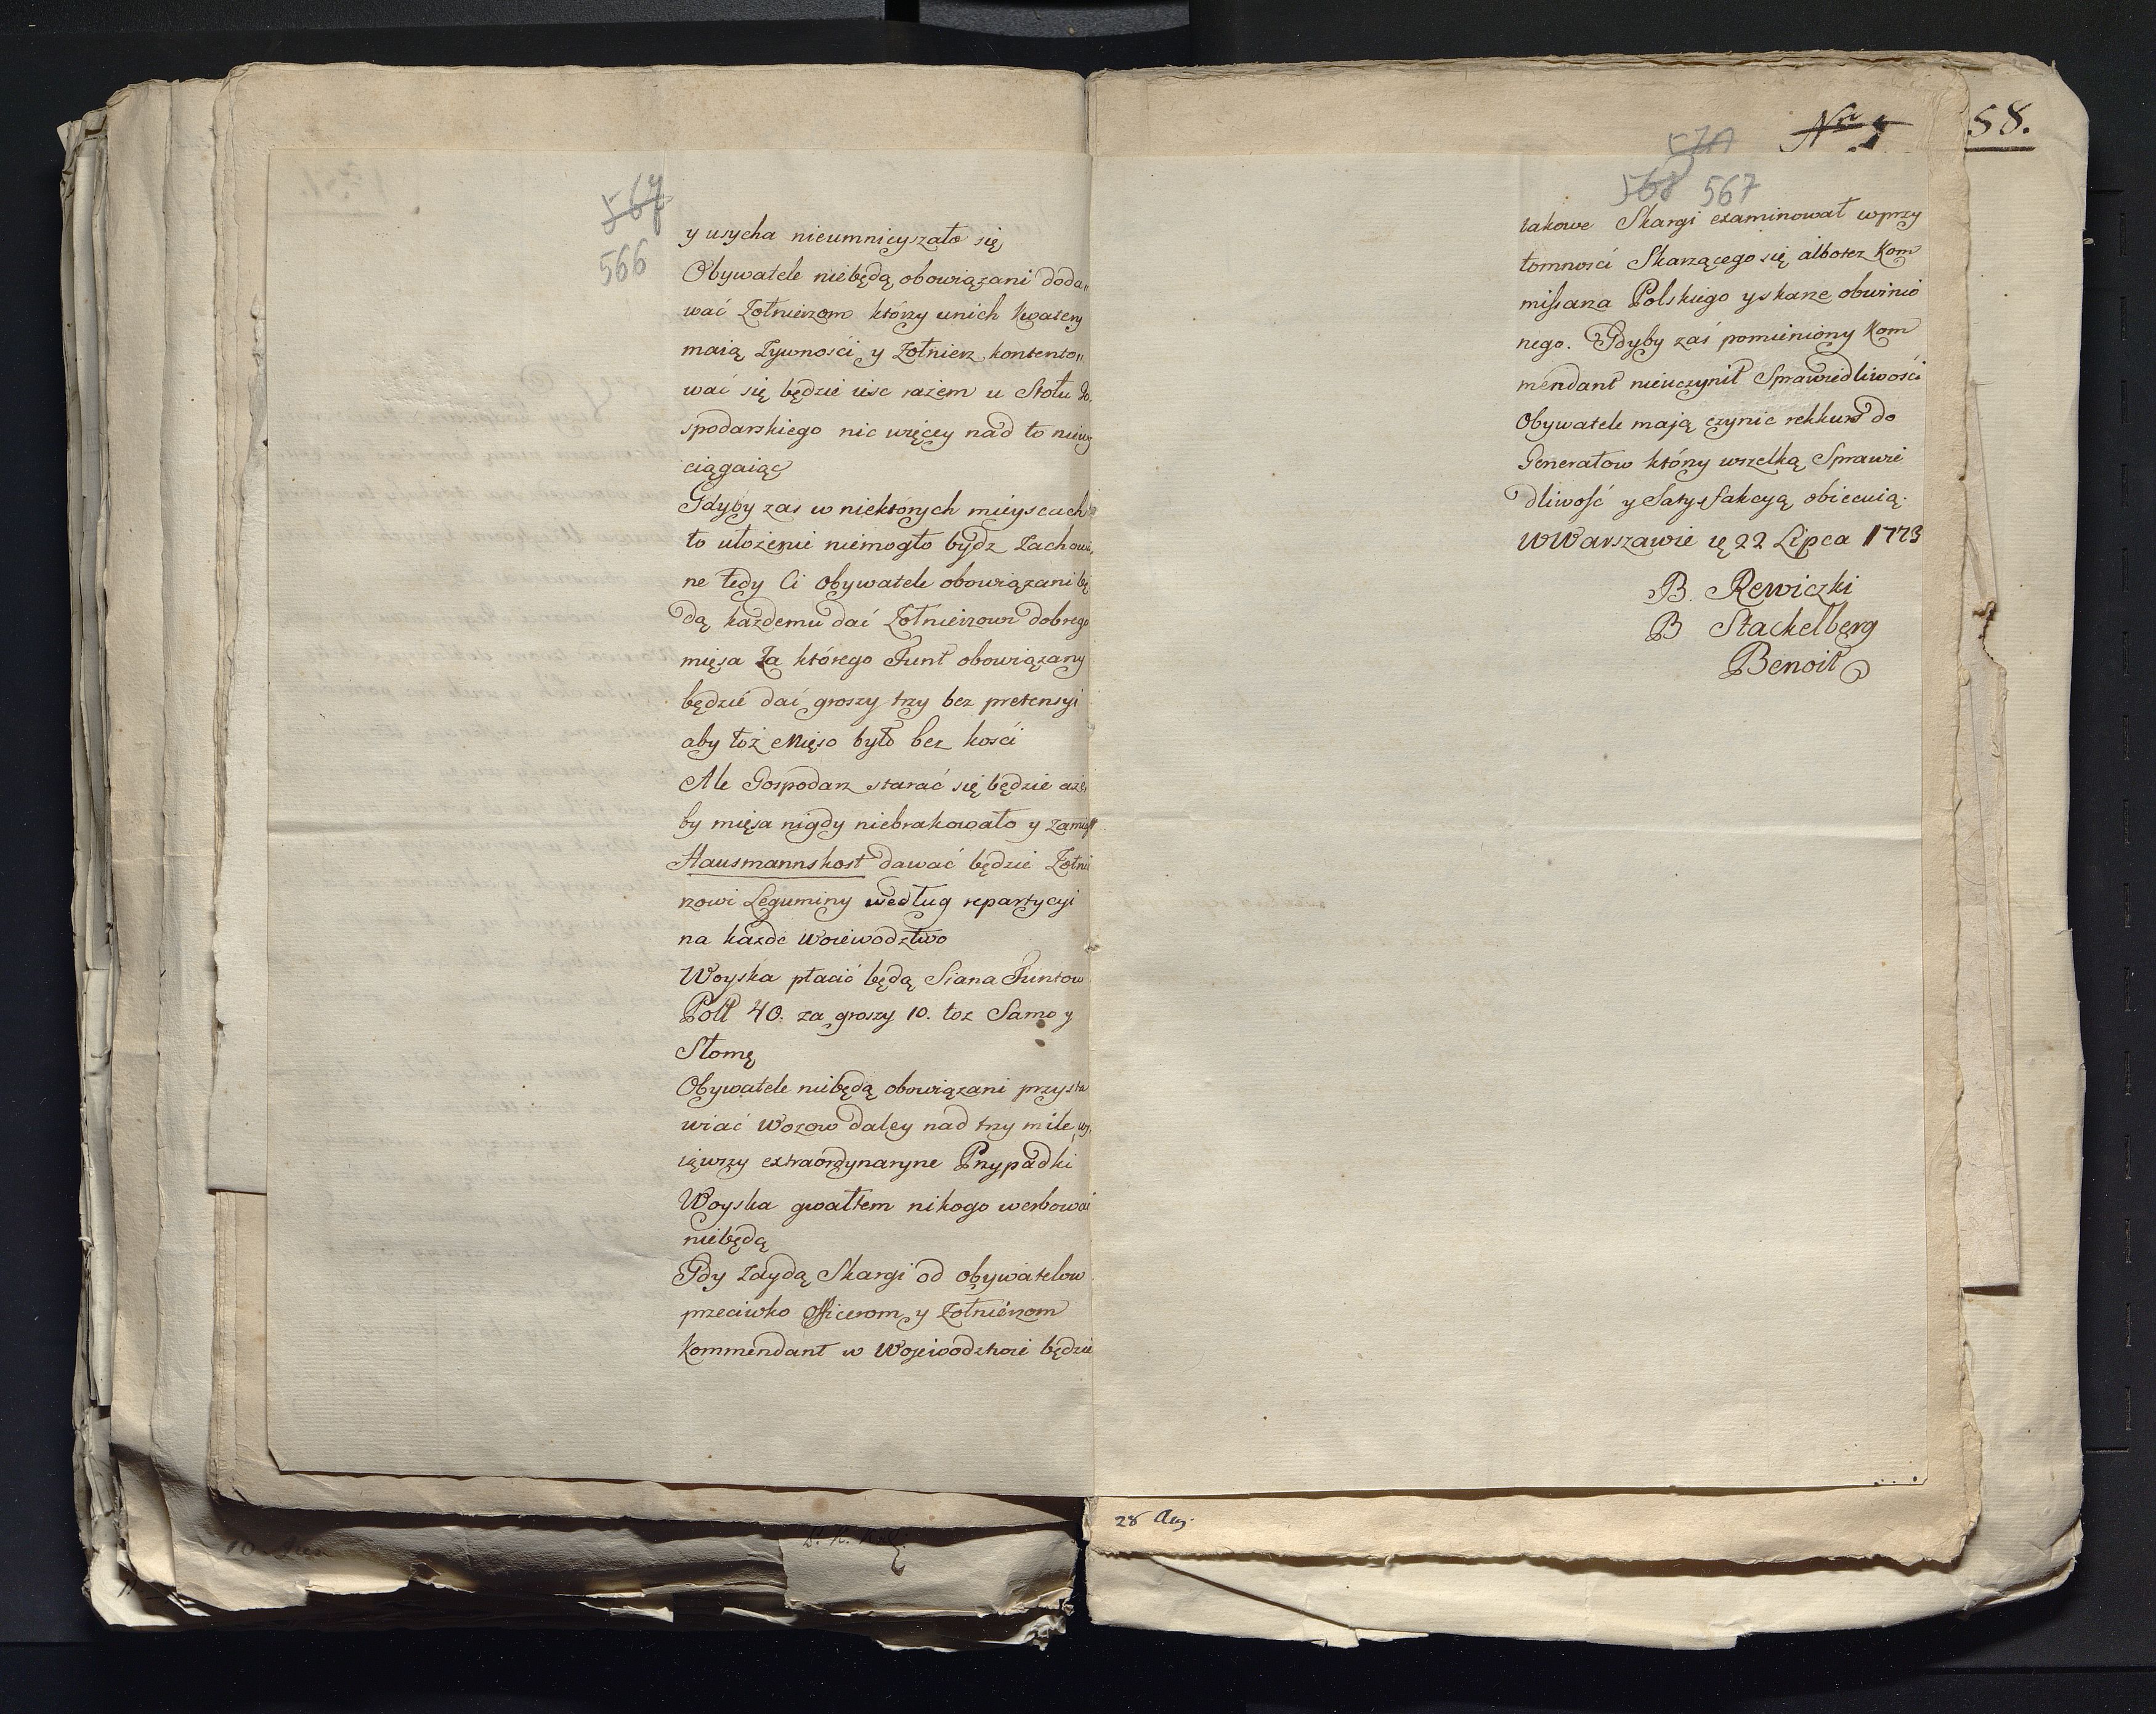 567
566
y usycha nieumnieyszało się
Obywatele niebędą obowiązani doda„
wać Żołnierzom którzy unich kwatery
maią Żywności y Żołnierz kontento„
wać się będzie iesc razem u Stołu Go.
spodarskiego nic więcey nad to niewy
ciągaiąc
Gdyby zas w niektórych mieyscach
to ułożenie niemogło bydz zachowa
ne tedy Ci Obywatele obowiązani bę
dą każdemu dać Żołnierzowi dobrego
mięsa Za którego Funt obowiązany
będzie dać groszy trzy bez pretensyi
aby toż Mięso było bez kości
Ale Gospodarz starać się będzie aże
by mięsa nigdy niebrakowało y zamiast
Hausmannskost dawać będzie Żołnie
rzowi Leguminy według repartycyi
na każde Woiewodztwo
Woyska płacić będą Siana Funtow
Poll 40. za groszy 10. toz Samo y
Słomę
Obywatele niebędą obowiązani przysta
wiać Wozow daley nad trzy mile wy,
iąwszy extraordynaryne Przypadki
Woyska gwałtem nikogo werbować
niebędą
Gdy Zaydą Skargi od obywatelow
przeciwko Officerom y Żołnierzom
Kommendant w Wojewodztwie będzie
Nro 1
58.
570
568 567
takowe Skargi examinował wprzy
tomności Skarzącego się albotez Kom
missarza Polskiego yskarze obwinio
nego. Gdyby zaś pomieniony Kom
mendant nieuczynił Sprawiedliwości
Obywatele mają czynic rekkurs do
Generałow który wszelką Sprawie
dliwość y Satysfakcyą obiecuią.
WWarszawie ię 22 Lipca 1773
B. Rewiczki
B Stackelberg
Benoit
28 Aug.